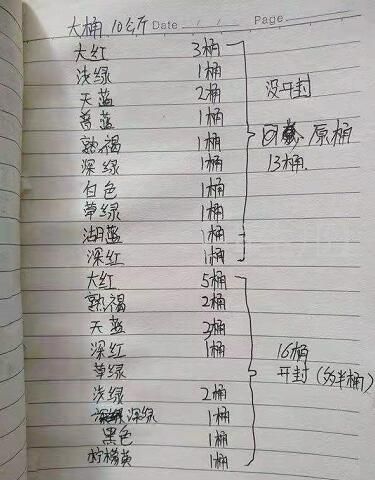 大桶 10公斤 Date / / Page
大红 3桶
浅绿 1桶
天蓝 2桶
普蓝 1桶
熟褐 1桶
深绿 1桶
白色 1桶
草绿 1桶
湖蓝 1桶
深红 1桶
没开封
原桶
13桶.
大红 5桶
熟褐 2桶
天蓝 2桶
深红 1桶
草绿
浅绿 2桶
深绿 1桶
黑色 1桶
柠檬黄 1桶
16桶
开封(多半桶)